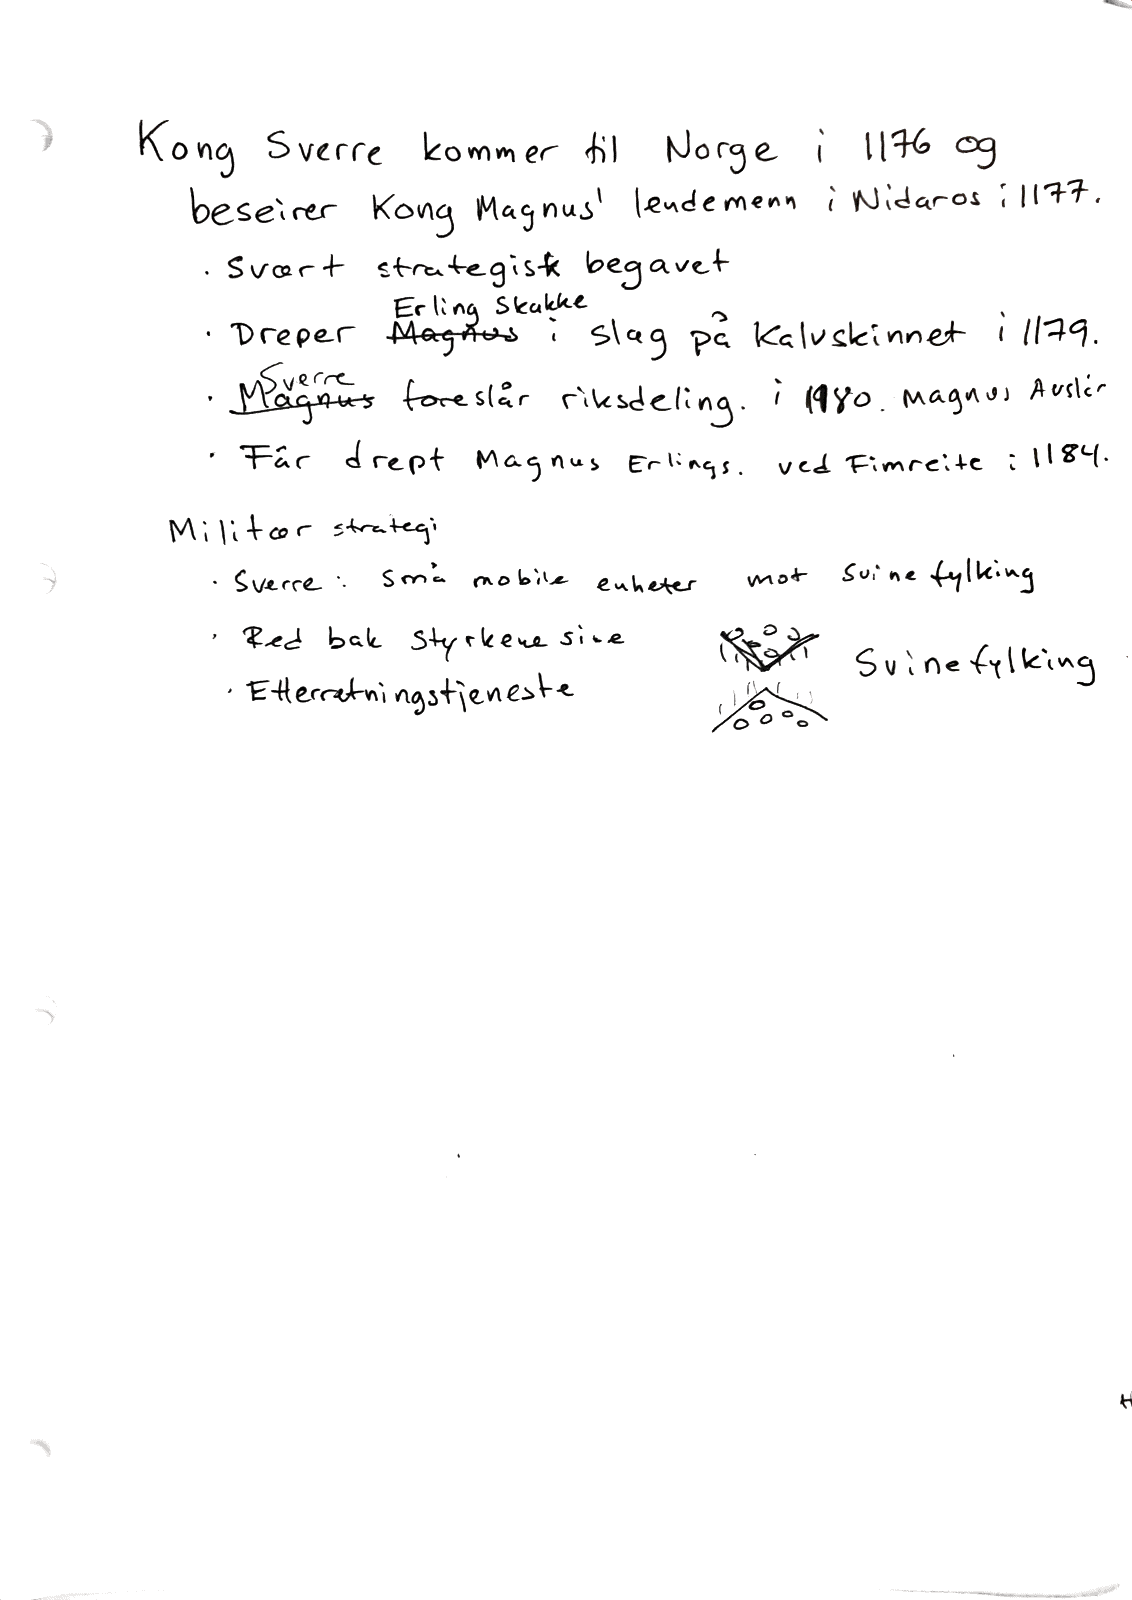 Kong Sverre kommer til Norge i 1176 og
beseirer Kong Magnus' lendemenn i Nidaros i 1177.
· Svært strategisk begavet
Erling Skakke
· Dreper Magnus i slag på Kalvskinnet i 1179.
Sverre
· Magnus foreslår riksdeling. i 1980. Magnus Avslår
· Får drept Magnus Erlings. ved Fimreite i 1184.
Militær strategi
· Sverre: små mobile enheter mot svinefylking
· Red bak styrkene sine
Svinefylking
· Etterretningstjeneste